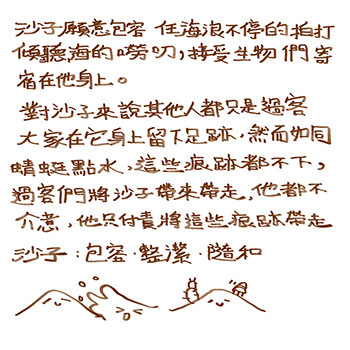 沙子願意包容 任海浪不停的拍打
傾聽海的嘮叨，接受生物們寄
宿在他身上。
對沙子來說其他人都只是過客
大家在它身上留下足跡，然而如同
蜻蜓點水，這些痕跡都不下，
過客們將沙子帶來帶走，他都不
介意，他只付責將這些痕跡帶走
沙子：包容·整潔·隨和